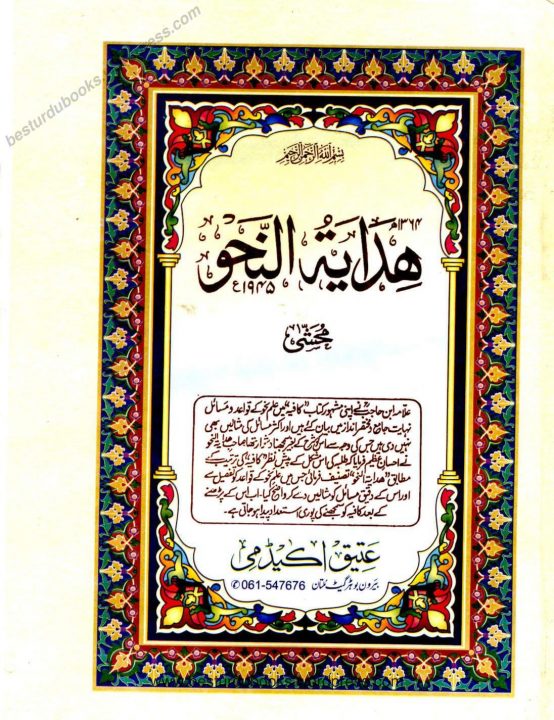 besturdubooks.wordpress.com
بسم الله الرحمن الرحيم
۱۳۶۴ھ
هِدَايَةُ النَّحْو
۱۹۴۵ء
مُحَشّٰی
علامہ ابن حاجبؒ نے اپنی مشہور کتاب "کافیہ" میں علم نحو کے قواعد و مسائل
نہایت جامع و مختصر انداز میں بیان کئے ہیں اور اکثر مسائل کی مثالیں بھی
نہیں دی ہیں جس کی وجہ سے اس کو شرح کے بغیر سمجھنا دشوار تھا صاحب ھدایۃ النحو
نے احسان عظیم فرمایا کہ طلبہ کی اس مشکل کے پیش نظر "کافیہ" کی ترتیب کے
مطابق "ھدایۃ النحو" تصنیف فرمائی جس میں علم نحو کے قواعد کو تفصیل سے
اور اس کے دقیق مسائل کو مثالیں دے کر واضح کیا۔ اب اس کے پڑھنے
کے بعد کافیہ کو سمجھنے کی پوری استعداد پیدا ہو جاتی ہے۔
عتیق اکیڈمی
بیرون بوہڑ گیٹ ملتان 061-547676 ✆